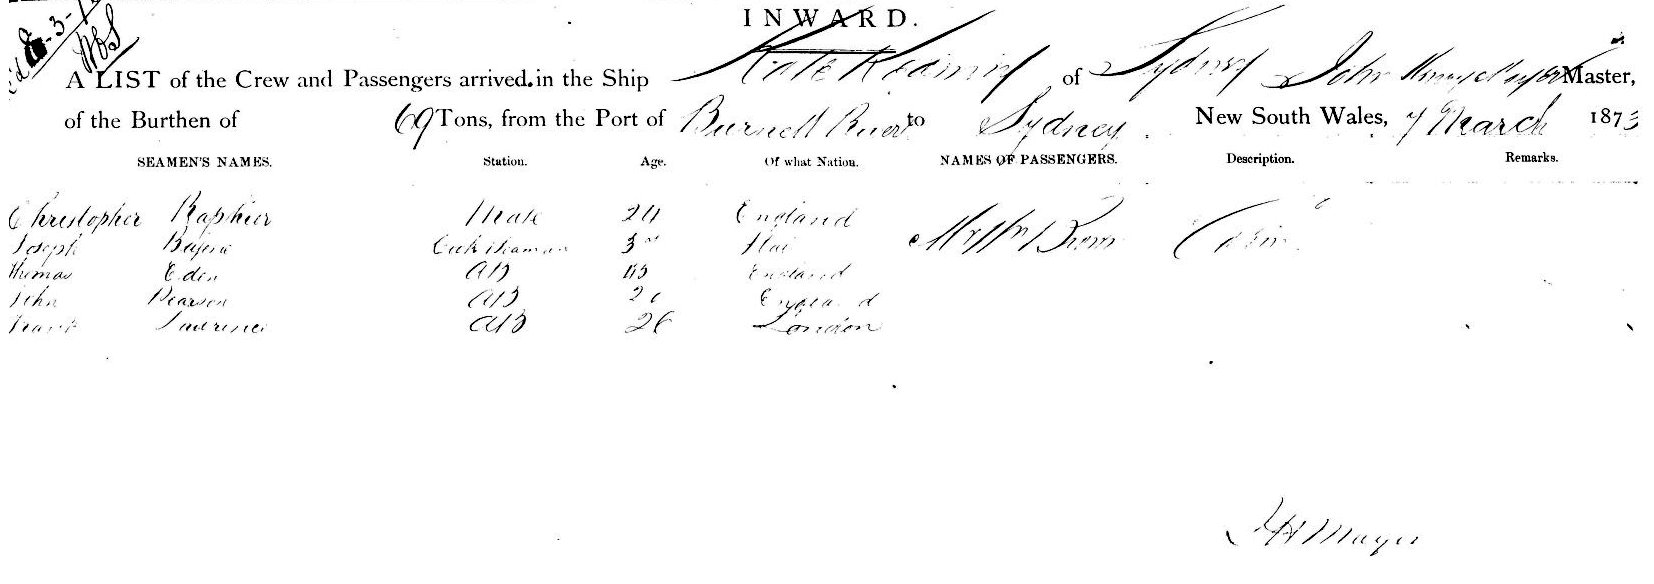 INWARD.
A LIST of the Crew and Passengers arrived in the Ship Kate of Sydney John Master,
of the Burthen of 69 Tons, from the Port of Burnett River to Sydney New South Wales, 7 March 1873
SEAMEN'S NAMES. Station. Age. Of what Nation. NAMES OF PASSENGERS. Description. Remarks.
Christopher Raphier Mate 24 England Brown Cabin
Joseph
Thomas Eden AB England
John Pearson AB England
Frank Lawrence AB 26 London
J H Mayer